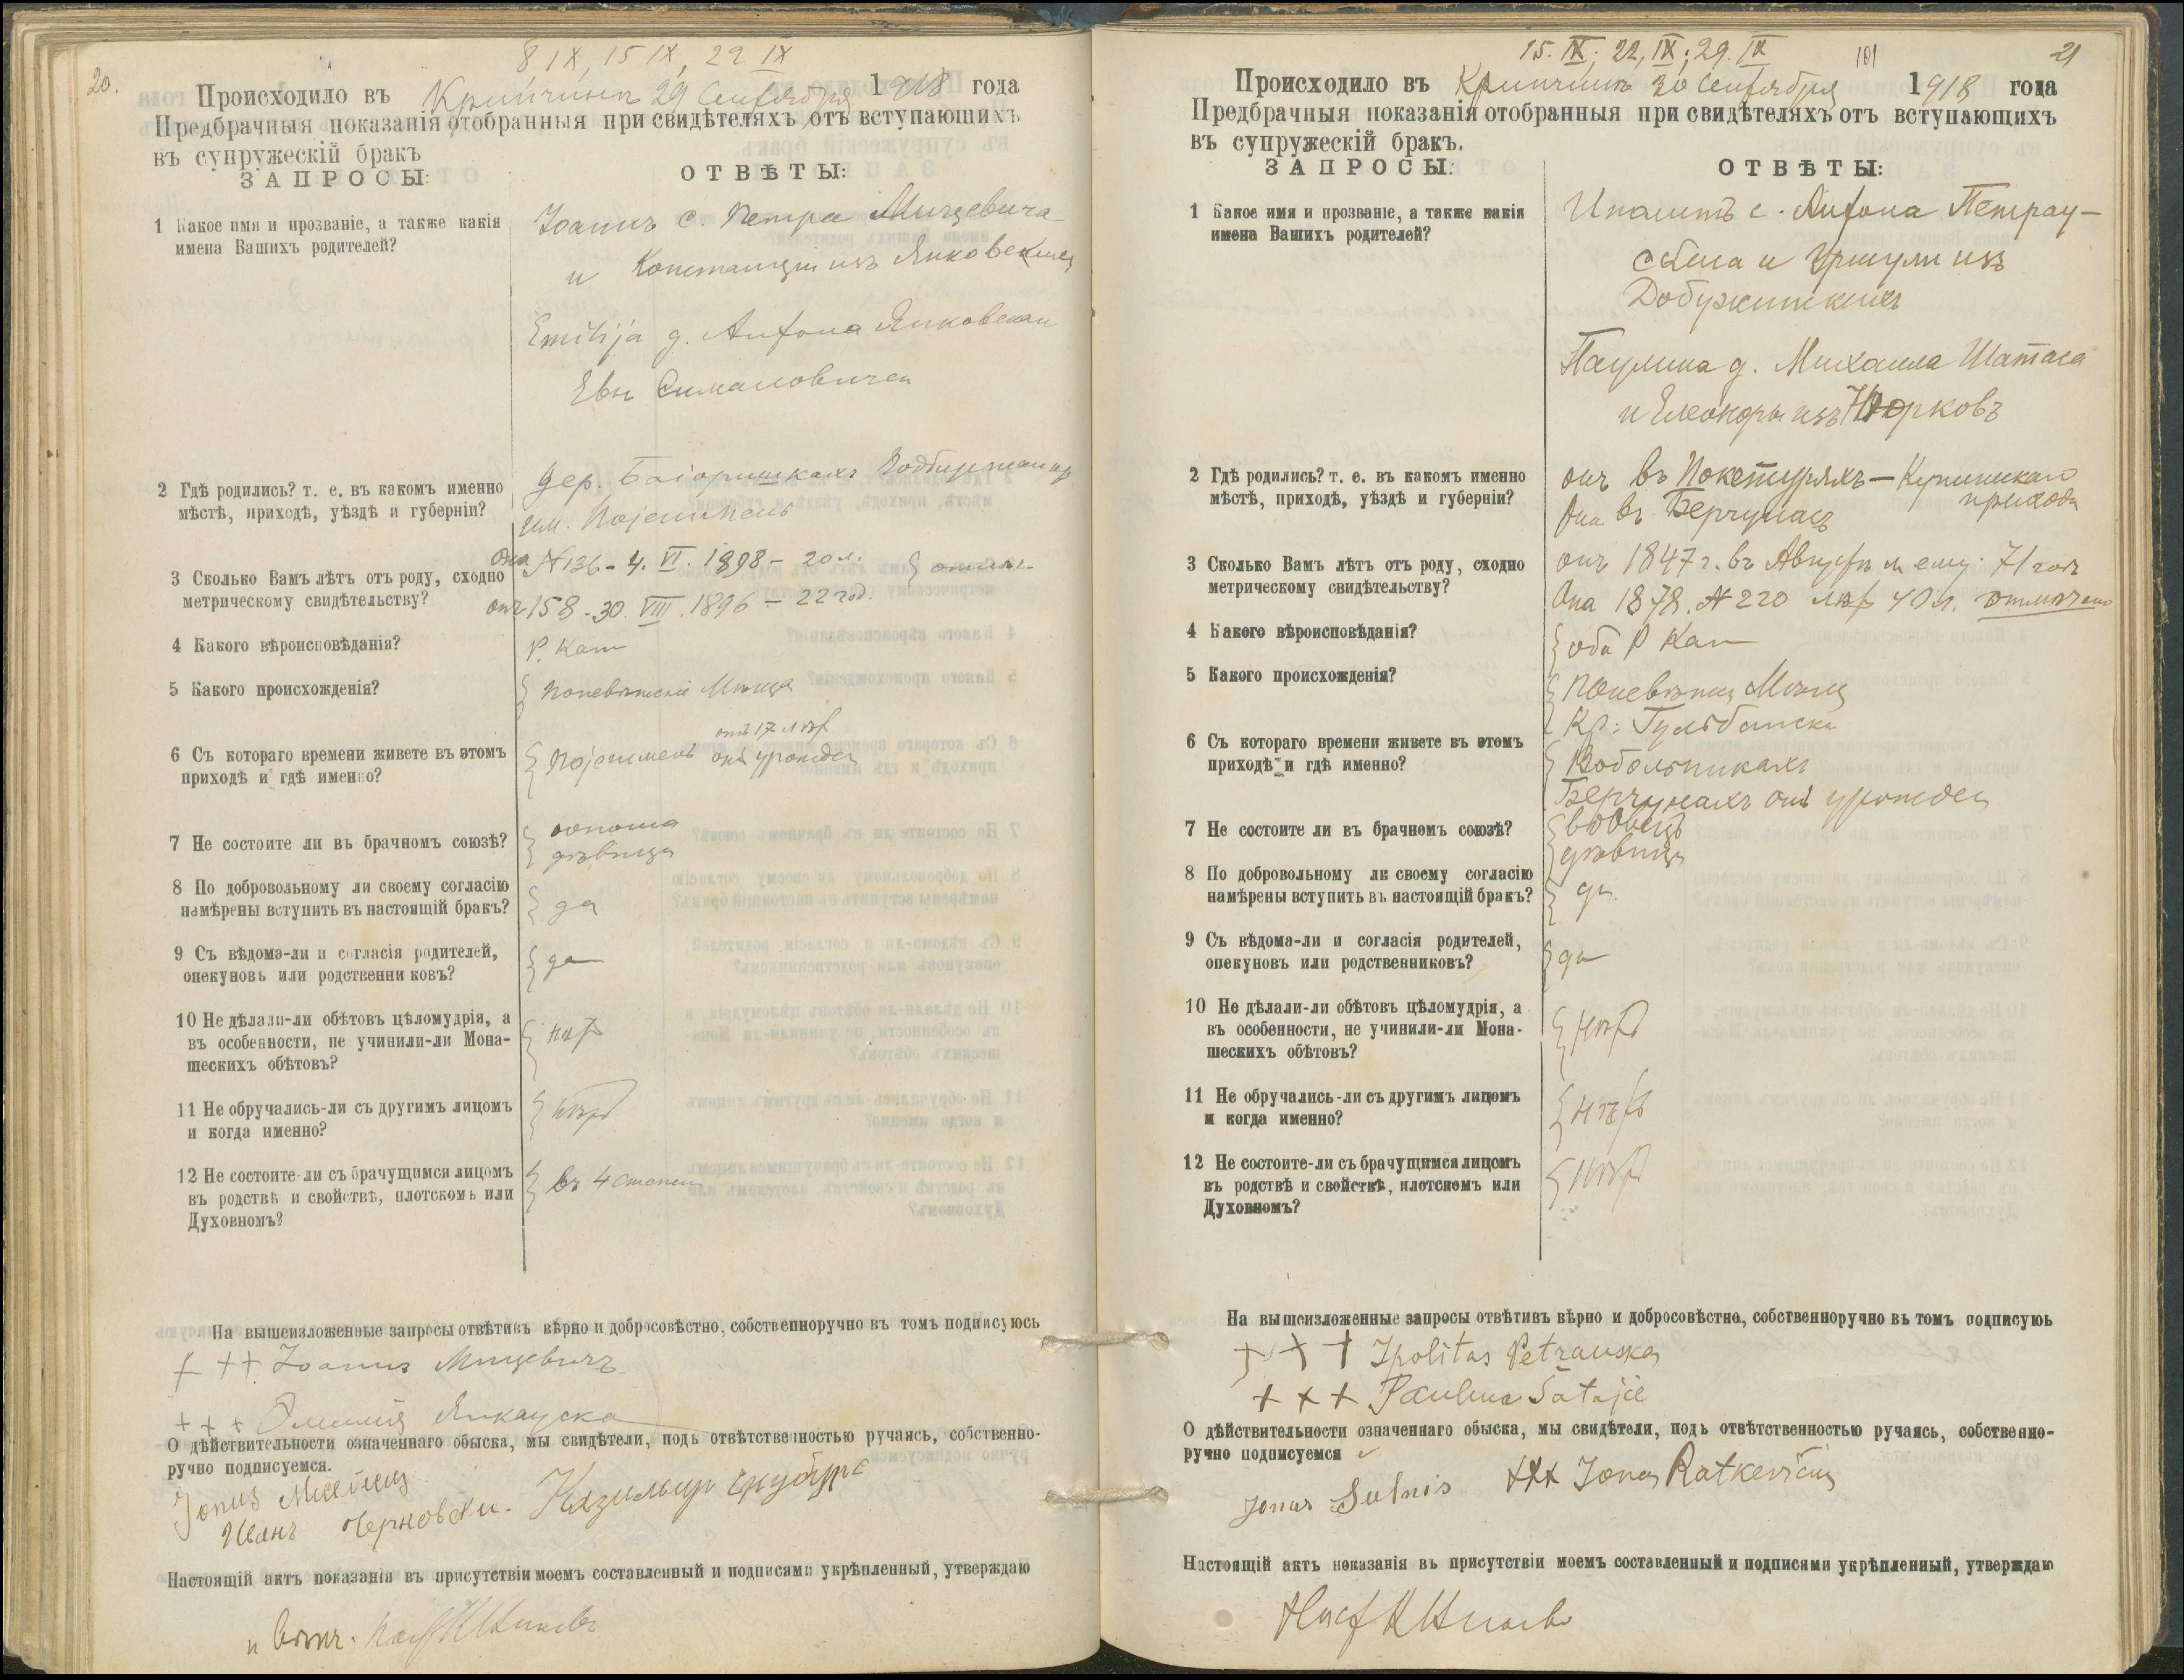 20.
8 IX, 15 IX, 22 IX
Происходило въ Кринчинѣ 29 Сентября 1918 года
Предбрачныя показанія отобранныя при свидѣтеляхъ отъ вступающихъ
въ супружескій бракъ
ЗАПРОСЫ: ОТВѢТЫ:
1 Какое имя и прозваніе, а также какія
имена Вашихъ родителей?
Іоаннъ с. Петра Мицевича
и Констанціи изъ Янковскихъ
Emilija д. Антона Янковская
Евы Симановичей
2 Гдѣ родились? т. е. въ какомъ именно
мѣстѣ, приходѣ, уѣздѣ и губерніи?
дер.
им.
3 Сколько Вамъ лѣтъ отъ роду, сходно
метрическому свидѣтельству?
она N136 - 4. VI. 1898 - 20 л.
онъ 158 - 30. VIII. 1896 - 22 год.
4 Какого вѣроисповѣданія?
Р. Кат
5 Какого происхожденія?
Поневѣжскіе
6 Съ котораго времени живете въ этомъ
приходѣ и гдѣ именно?
17 лѣт
урожден
7 Не состоите ли въ брачномъ союзѣ?
юноша
дѣвица
8 По добровольному ли своему согласію
намѣрены вступить въ настоящій бракъ?
да
9 Съ вѣдома-ли и согласія родителей,
опекуновъ или родственни ковъ?
да
10 Не дѣлали-ли обѣтовъ цѣломудрія, а
въ особенности, не учинили-ли Мона-
шескихъ обѣтовъ?
нѣт
11 Не обручались-ли съ другимъ лицомъ
и когда именно?
нѣт
12 Не состоите-ли съ брачущимся лицомъ
въ родствѣ и свойствѣ, плотскомъ или
Духовномъ?
въ 4 степени
На вышеизложенные запросы отвѣтивъ вѣрно и добросовѣстно, собственноручно въ томъ подписуюсь
+ ++ Іоаннъ Мицевичъ
+ + + Эмилія Янкауска
О дѣйствительности означеннаго обыска, мы свидѣтели, подъ отвѣтственностью ручаясь, собственно-
ручно подписуемся.
Иванъ Черновски. Казимир
Настоящій актъ показанія въ присутствіи моемъ составленный и подписями укрѣпленный, утверждаю
15. IX; 22, IX; 29. IX
101
21
Происходило въ Кринчинѣ 30 Сентября 1918 года
Предбрачныя показанія отобранныя при свидѣтеляхъ отъ вступающихъ
въ супружескій бракъ.
ЗАПРОСЫ: ОТВѢТЫ:
1 Какое имя и прозваніе, а также какія
имена Вашихъ родителей?
Ипалитъ с. Антона Петрау-
скаса и Уршули изъ
Добужинскихъ
Паулина д. Михаила Шатаса
и Елеоноры изъ Норковъ
2 Гдѣ родились? т. е. въ какомъ именно
мѣстѣ, приходѣ, уѣздѣ и губерніи?
онъ въ
прихода
Она въ Берчунахъ
3 Сколько Вамъ лѣтъ отъ роду, сходно
метрическому свидѣтельству?
онъ 1847 г. въ Августѣ м ему 71 годъ
Она 1878. N 220 лѣт 40 л. отмѣчено
4 Какого вѣроисповѣданія?
оба Р Кат
5 Какого происхожденія?
Поневѣжск
Кр:
6 Съ котораго времени живете въ этомъ
приходѣ и гдѣ именно?
Вобольникахъ
Берчунахъ отъ урожден
7 Не состоите ли въ брачномъ союзѣ?
вдовецъ
дѣвица
8 По добровольному ли своему согласію
намѣрены вступить въ настоящій бракъ?
да
9 Съ вѣдома-ли и согласія родителей,
опекуновъ или родственниковъ?
да
10 Не дѣлали-ли обѣтовъ цѣломудрія, а
въ особенности, не учинили-ли Мона-
шескихъ обѣтовъ?
нѣт
11 Не обручались-ли съ другимъ лицомъ
и когда именно?
нѣтъ
12 Не состоите-ли съ брачущимся лицомъ
въ родствѣ и свойствѣ, плотскомъ или
Духовномъ?
нѣт
На вышеизложенные запросы отвѣтивъ вѣрно и добросовѣстно, собственноручно въ томъ подписуюь
+ + + Ipolitas Petrauskas
+ + + Paulina Šatajcie
О дѣйствительности означеннаго обыска, мы свидѣтели, подъ отвѣтственностью ручаясь, собственно-
ручно подписуемся
Jonas Sulnis +++ Jonas Ratkevičius
Настоящій актъ показанія въ присутствіи моемъ составленный и подписями укрѣпленный, утверждаю